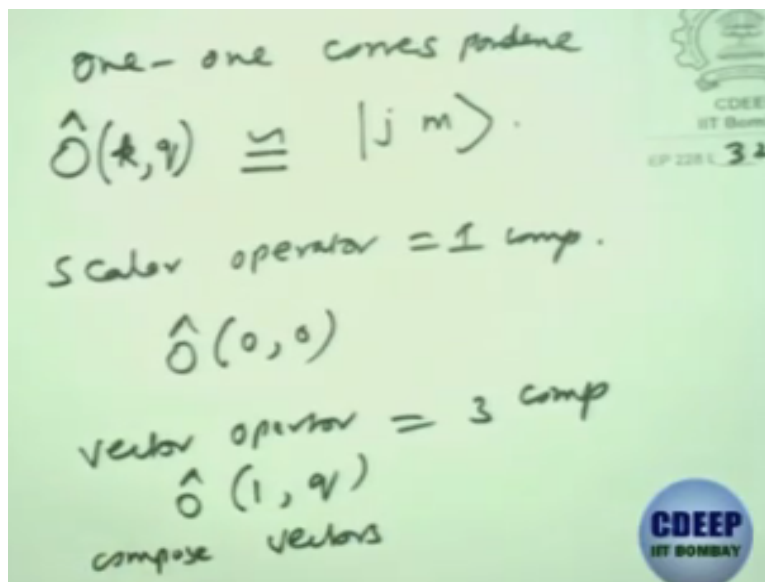 one-one corres pondene
CDEEP
IIT Bom
Ô(k,q) ≌ |j m>.
EP 228 L 32
scalar operator = 1 comp.
Ô(0,0)
vector opertor = 3 comp
Ô(1,q)
compose vectors
CDEEP
IIT BOMBAY